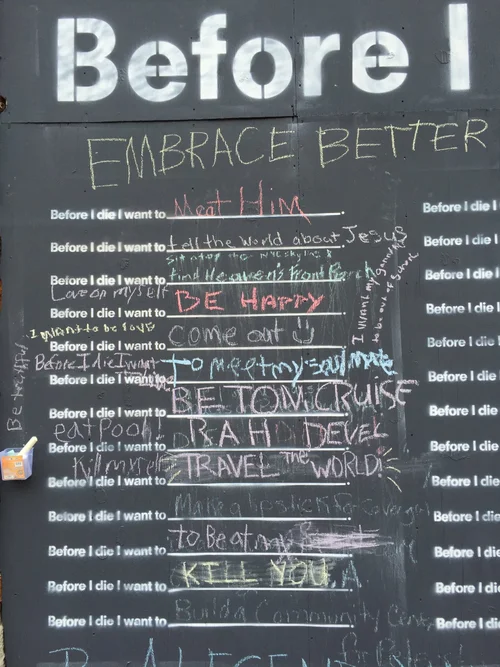 Before I
EMBRACE BETTER
Before I die I want to Meet HIM.
Before I die I want to tell the world about Jesus.
Before I die I want to find Heavens Front Porch
Love on myself
Before I die I want to BE HAPPY
I want to be love
Before I die I want to come out
Before I die I want
Before I die I want to To meet my soul mate
Before I die I want to BE TOM CRUISE
eat Pooh!
Before I die I want to RAH DEVEL
Kill myself
Before I die I want to TRAVEL the WORLD!
Before I die I want to Make a lipstick
Before I die I want to To Be at my
Before I die I want to KILL YOU
Before I die I want to Build a Community Center
I want my
to be out of
Before I die
Before I die
Before I die
Before I die
Before I die
Before I die
Before I die
Before I die
Before I die
Before I die
Before I die
Before I die
Before I die